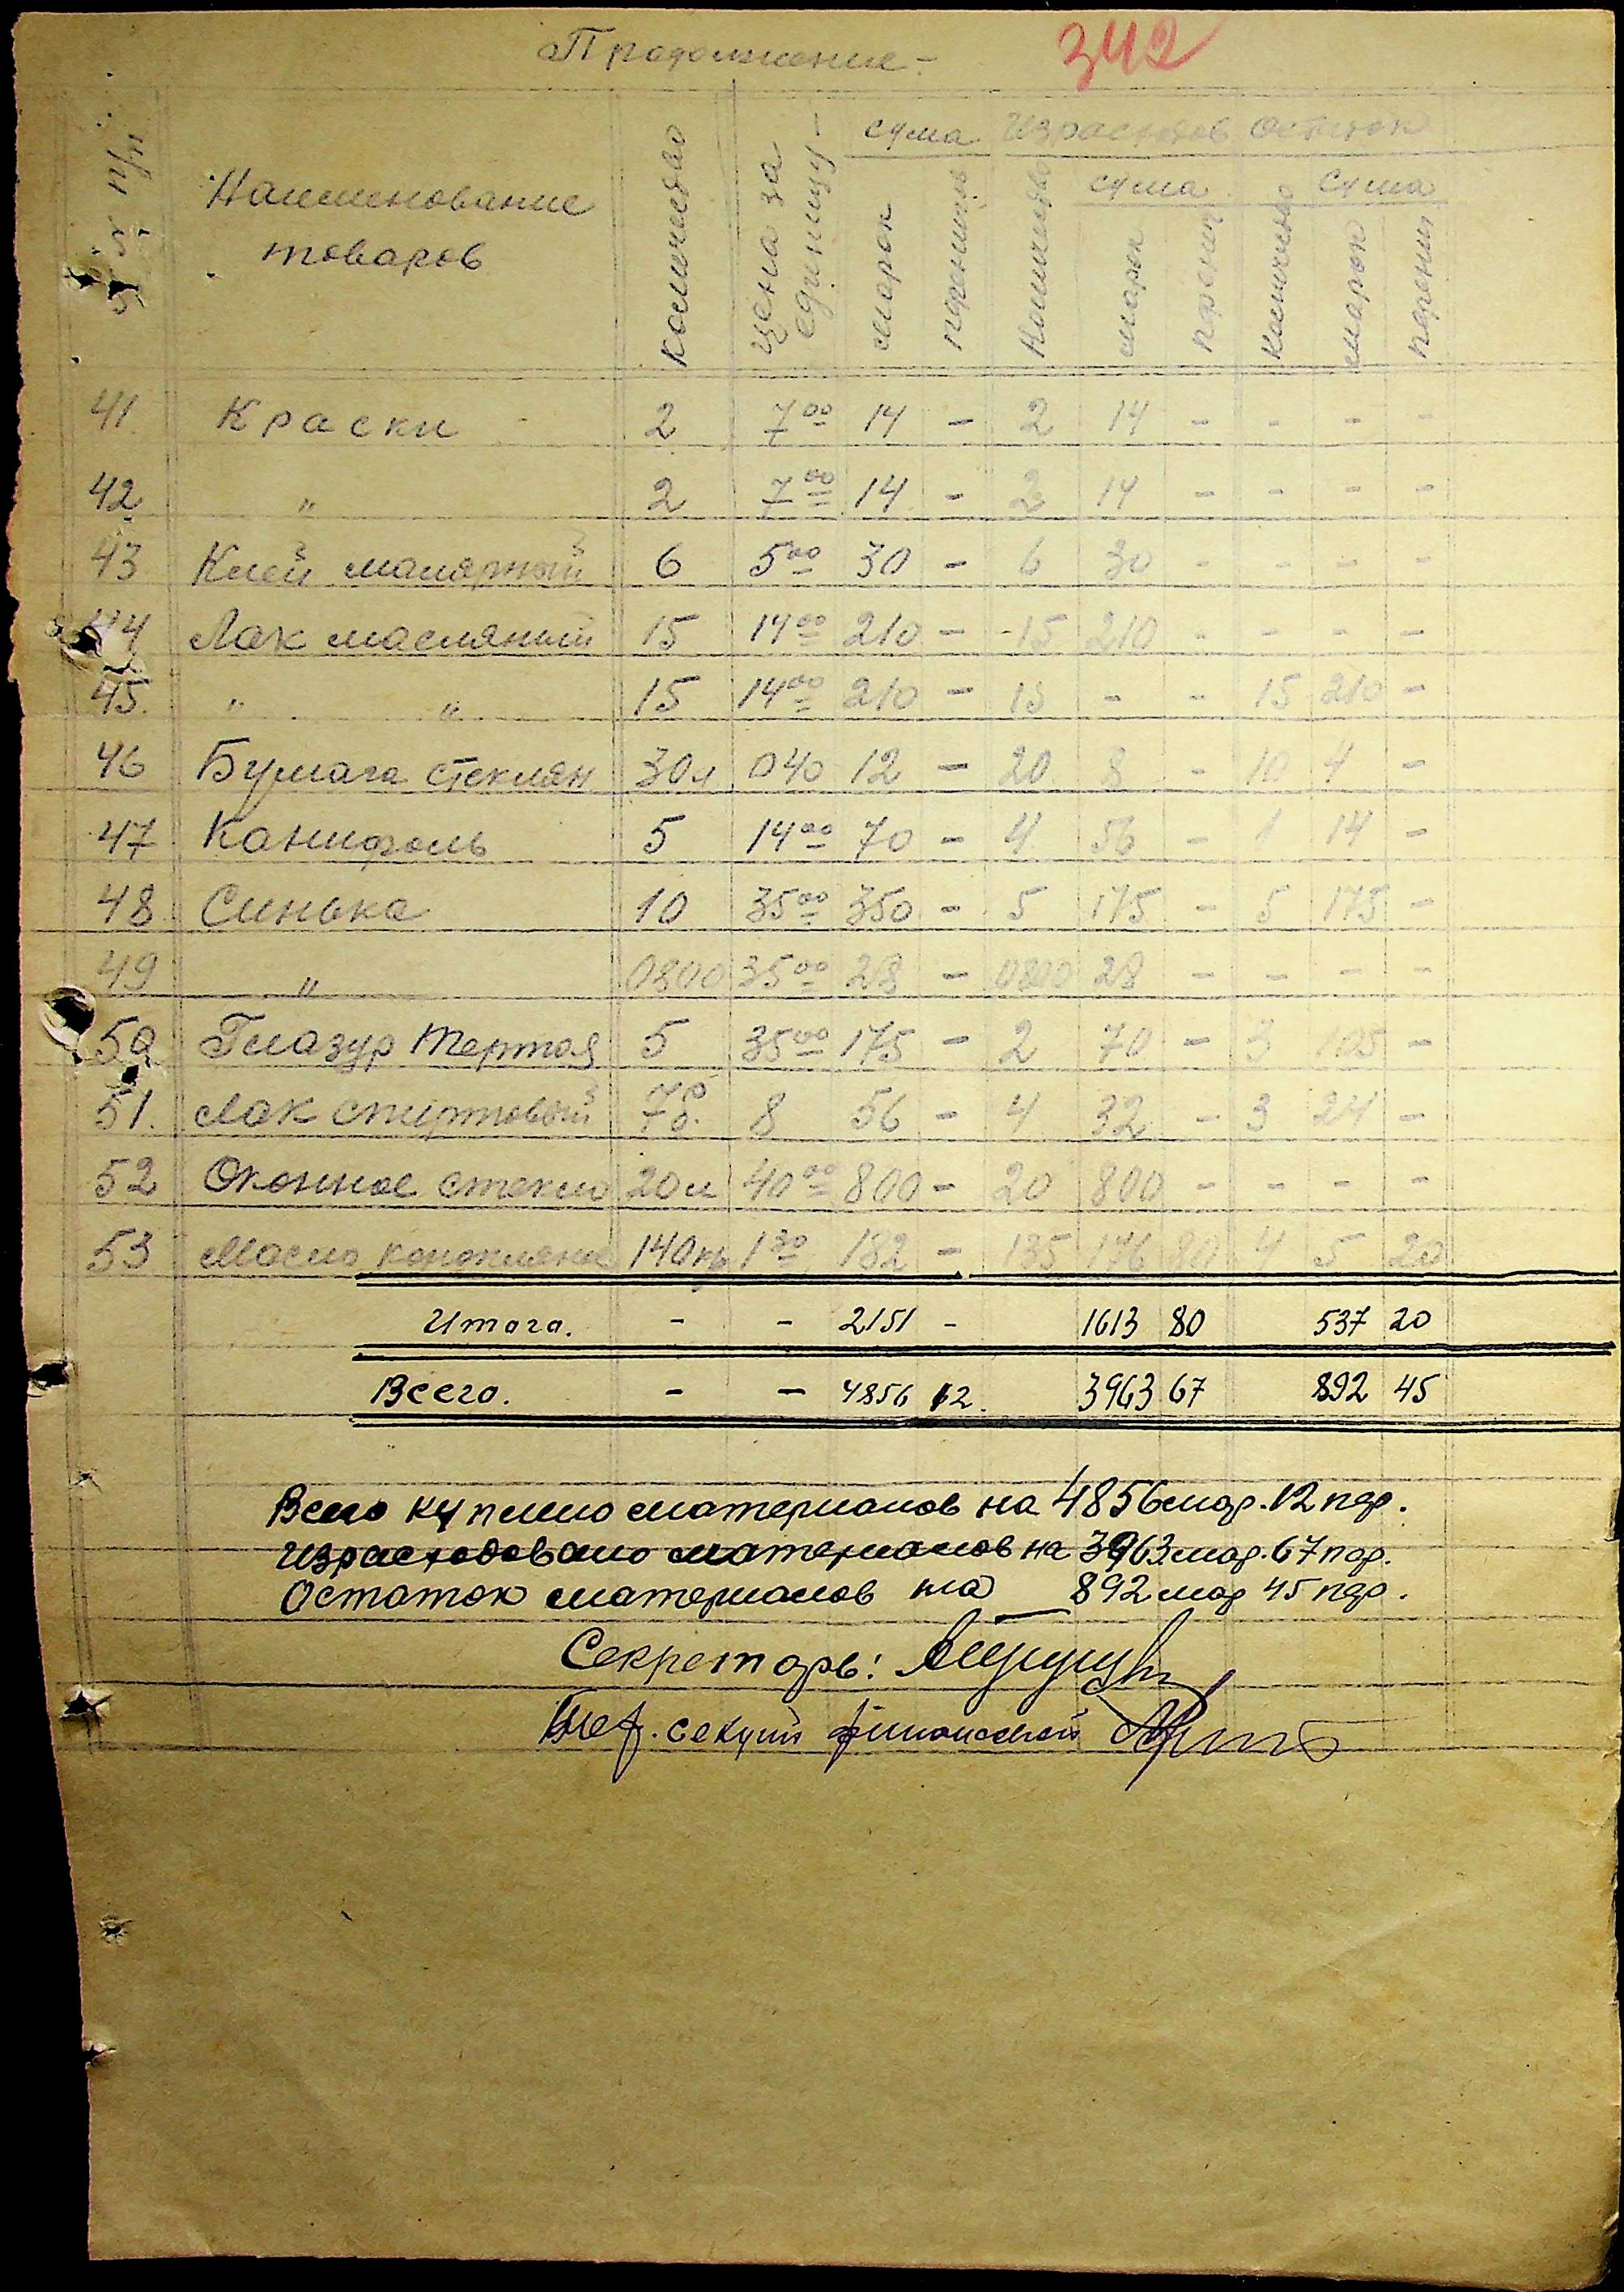 Продолжение - 342
№ п/п Наименование товаров Количество Цена за единицу - сума Израсходов Остаток
сума сума
марок пфениг Количество марок пфениг Количество марок пфениг
41. Краски 2 7 00 14 - 2 14 - - - -
42 " 2 7 00 14 - 2 14 - - - -
43 Клей малярный 6 5 00 30 - 6 30 - - - -
44 Лак масляный 15 14 00 210 - 15 210 - - - -
45. " " 15 14 00 210 - 15 - - 15 210 -
46 Бумага стеклян 30л 040 12 - 20 8 - 10 4 -
47 Канифоль 5 14 00 70 - 4 56 - 1 14 -
48 Синька 10 35 00 350 - 5 175 - 5 175 -
49 " 0800 35 00 28 - 0800 28 - - - -
50 Глазур тертоя 5 35 00 175 - 2 70 - 3 105 -
51. Лак спиртовый 7 8 56 - 4 32 - 3 24 -
52 Оконное стекло 20 40 00 800 - 20 800 - - - -
53 Масло 140 1 30 182 - 135 176 80 4 5 20
Итого. - - 2151 - 1613 80 537 20
Всего. - - 4856 12. 3963 67 892 45
Всего куплино материалов на 4856 мар. 12 пф.
Израсходовано материалов на 3963 мар. 67 пф.
Остаток материалов на 892 мар 45 пф.
Секретарь:
секции финансовой